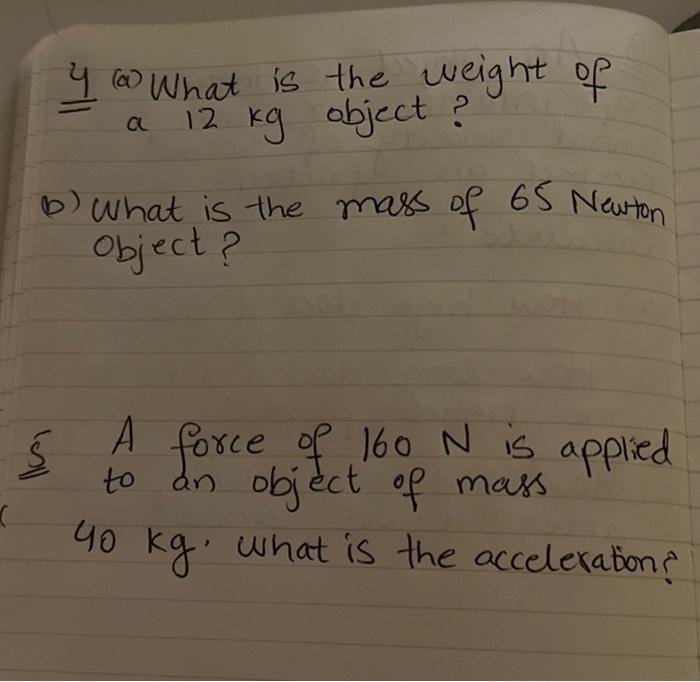 4 (a) What is the weight of
a 12 kg object?
b) What is the mass of 65 Newton
Object?
5 A force of 160 N is applied
to an object of mass
40 kg. what is the acceleration?